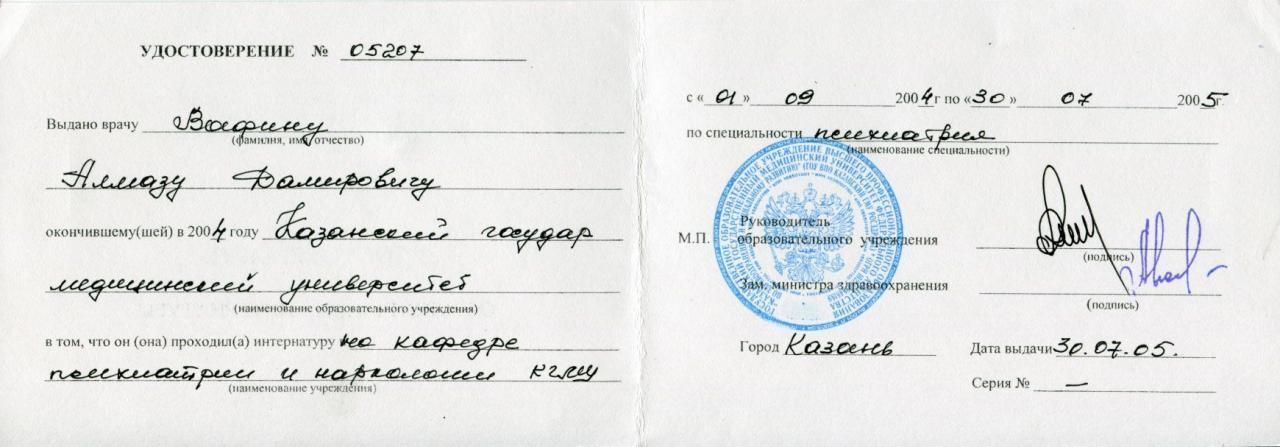 УДОСТОВЕРЕНИЕ № 05207
Выдано врачу Вафину
(фамилия, имя, отчество)
Алмазу Дамировичу
окончившему(шей) в 2004 году Казанский государ
медицинский университет
(наименование образовательного учреждения)
в том, что он (она) проходил(а) интернатуру на кафедре
психиатрии и наркологии КГМУ
(наименование учреждения)
с «01» 09 2004г по «30» 07 2005г.
по специальности психиатрия
(наименование специальности)
Руководитель
М.П. образовательного учреждения
(подпись)
Зам. министра здравоохранения
(подпись)
Город Казань Дата выдачи 30.07.05.
Серия № —